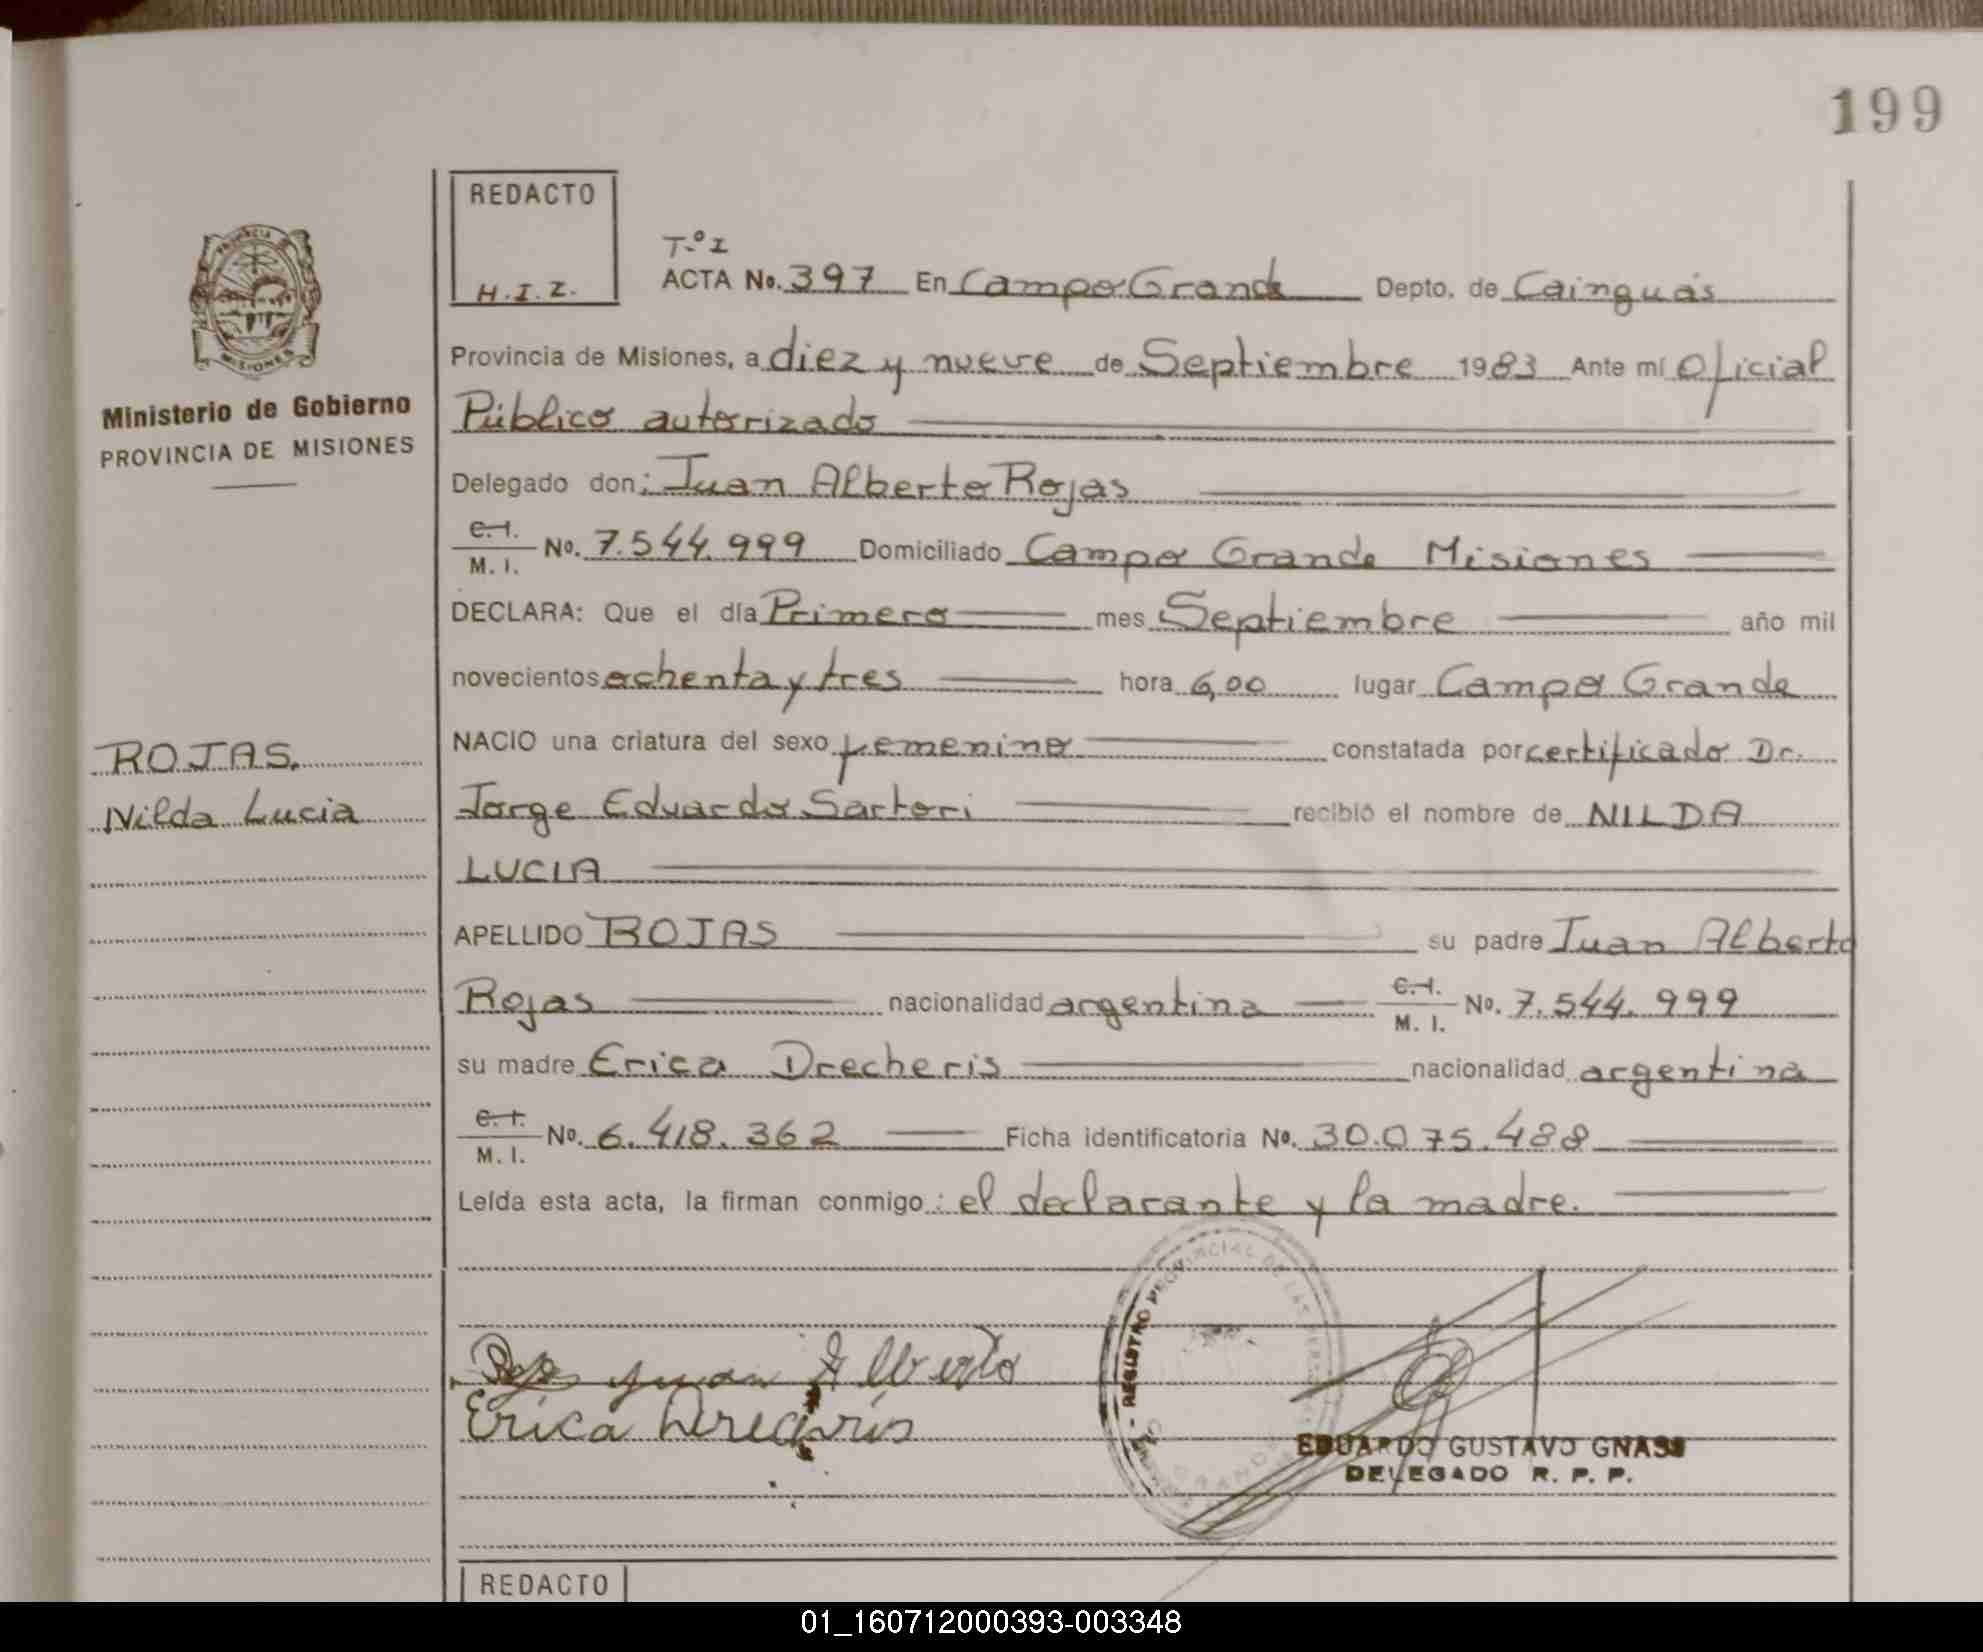 199
REDACTO
H.I.Z.
T.º I
ACTA No. 397 En Campo Grande Depto. de Cainguás
Provincia de Misiones, a diez y nueve de Septiembre 1983 Ante mí Oficial
Público autorizado
Delegado don: Juan Alberto Rojas
C.I.
M. I. No. 7.544.999 Domiciliado Campo Grande Misiones
DECLARA: Que el día Primero mes Septiembre año mil
novecientos ochenta y tres hora 6,00 lugar Campo Grande
NACIO una criatura del sexo femenino constatada por certificado Dr.
Jorge Eduardo Sartori recibió el nombre de NILDA
LUCIA
APELLIDO ROJAS su padre Juan Alberto
Rojas nacionalidad argentina C.I.
M. I. No. 7.544.999
su madre Erica Drecheris nacionalidad argentina
C.I.
M. I. No. 6.418.362 Ficha identificatoria No. 30.075.488
Leída esta acta, la firman conmigo: el declarante y la madre.
PROVINCIA
MISIONES
Ministerio de Gobierno
PROVINCIA DE MISIONES
ROJAS.
Nilda Lucia
Juan Alberto
Erica
REGISTRO PROVINCIAL DE LAS
EDUARDO GUSTAVO GNASS
DELEGADO R. P. P.
REDACTO
01_160712000393-003348